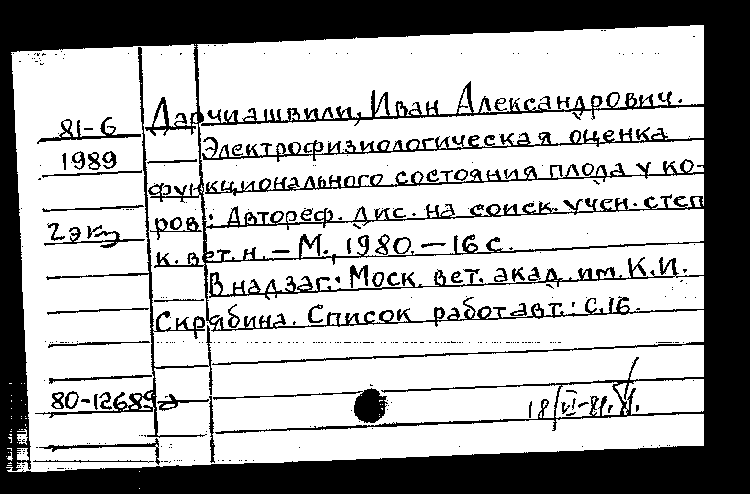 Дарчиашвили, Иван Александрович.
81-6
1989
Электрофизиологическая оценка
функционального состояния плода у ко-
ров: Автореф. дис. на соиск. учен. степ
2 экз
к. вет. н. – М., 1980. – 16 с.
В надзаг.: Моск. вет. акад. им. К.И.
Скрябина. Список работ авт.: с.16.
80-12689а
18/VI-81.